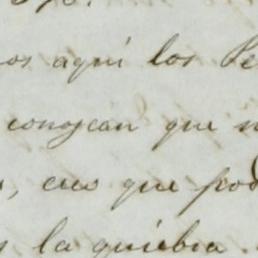 os aquí los Pe
conozcan que n
, creo que pod
s la quiebra.